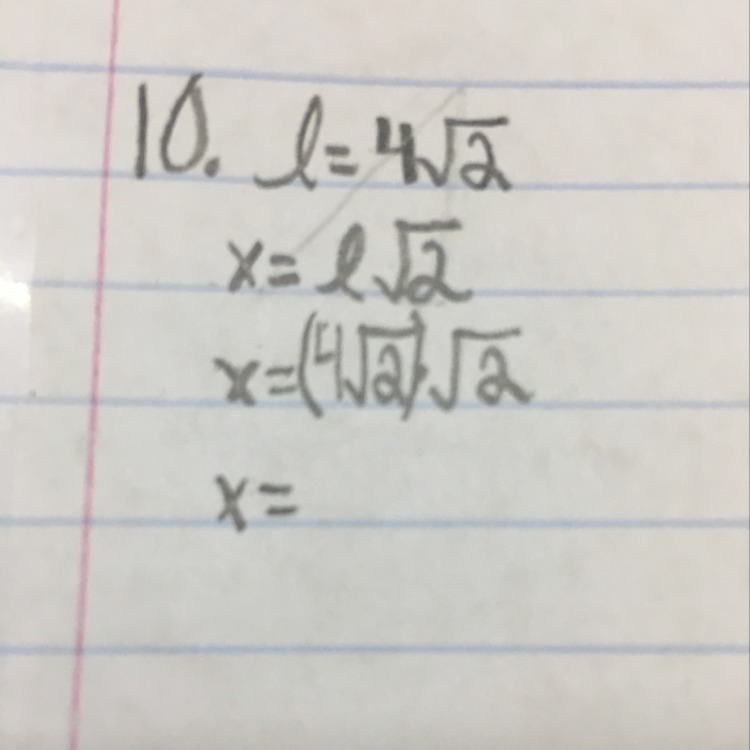 10. l = 4√2
x = l√2
x = (4√2)·√2
x =